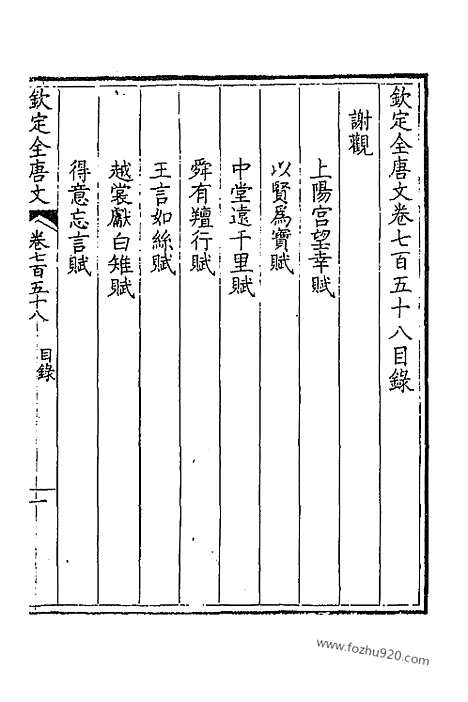 欽定全唐文卷七百五十八目錄
謝觀
上陽宮望幸賦
以賢爲寶賦
中堂遠千里賦
舜有羶行賦
王言如絲賦
越裳獻白雉賦
得意忘言賦
欽定全唐文 卷七百五十八 目錄 一
www.fozhu920.com